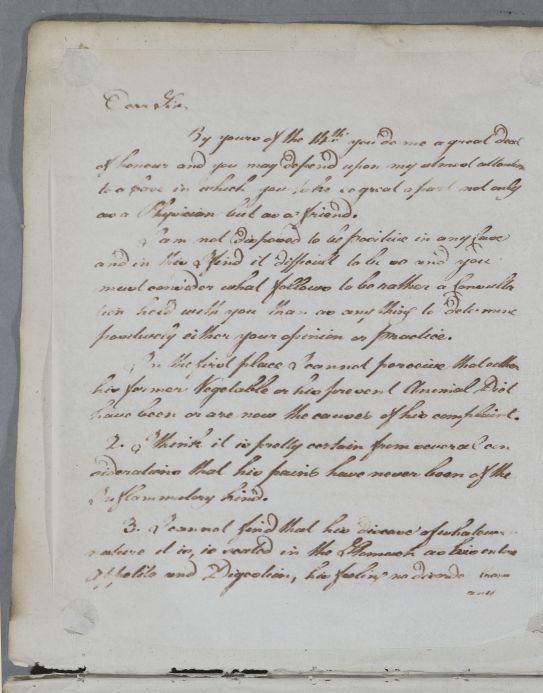 Dear Sir,
By yours of the 14th. you do me a great deal
of honour and you may depend upon my utmost attention
to a Case in which you take a great a part not only
as a Physician but as a friend.
I am not disposed to be positive in any Case
and in this I find it difficult to be so and you
must consider what follows to be rather a Consulta
tion held with you than as any thing to determine
positively either your opinion or practice.
In the first place I cannot perceive that either
his former Vegetable or his present Animal Diet
have been or are now the causes of his complaint.
2. I think it is pretty certain from several con
siderations that his pains have never been of the
Inflammatory kind.
3. I cannot find that his disease of whatever
nature it is, is seated in the Stomach as his entire
Appetite and Digestion, his feeling no disorder
and